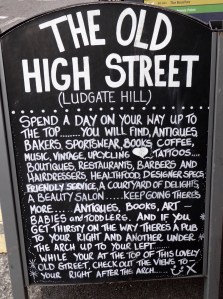 THE OLD
HIGH STREET
(LUDGATE HILL)
SPEND A DAY ON YOUR WAY UP TO
THE TOP........YOU WILL FIND, ANTIQUES,
BAKERS, SPORTSWEAR, BOOKS, COFFEE,
MUSIC, VINTAGE, UPCYCLING TATTOOS....
BOUTIQUES, RESTAURANTS, BARBERS AND
HAIRDRESSERS, HEALTHFOOD, DESIGNER SPECS,
FRIENDLY SERVICE, A COURTYARD OF DELIGHTS,
A BEAUTY SALON.....KEEP GOING THERE'S
MORE.... ANTIQUES, BOOKS, ART —
BABIES and TODDLERS. AND IF YOU
GET THIRSTY ON THE WAY THERE'S A PUB
TO YOUR RIGHT AND ANOTHER UNDER
THE ARCH UP TO YOUR LEFT.
WHILE YOUR AT THE TOP OF THIS LOVELY
OLD STREET, CHECK OUT THE VIEWS TO
YOUR RIGHT AFTER THE ARCH..... X